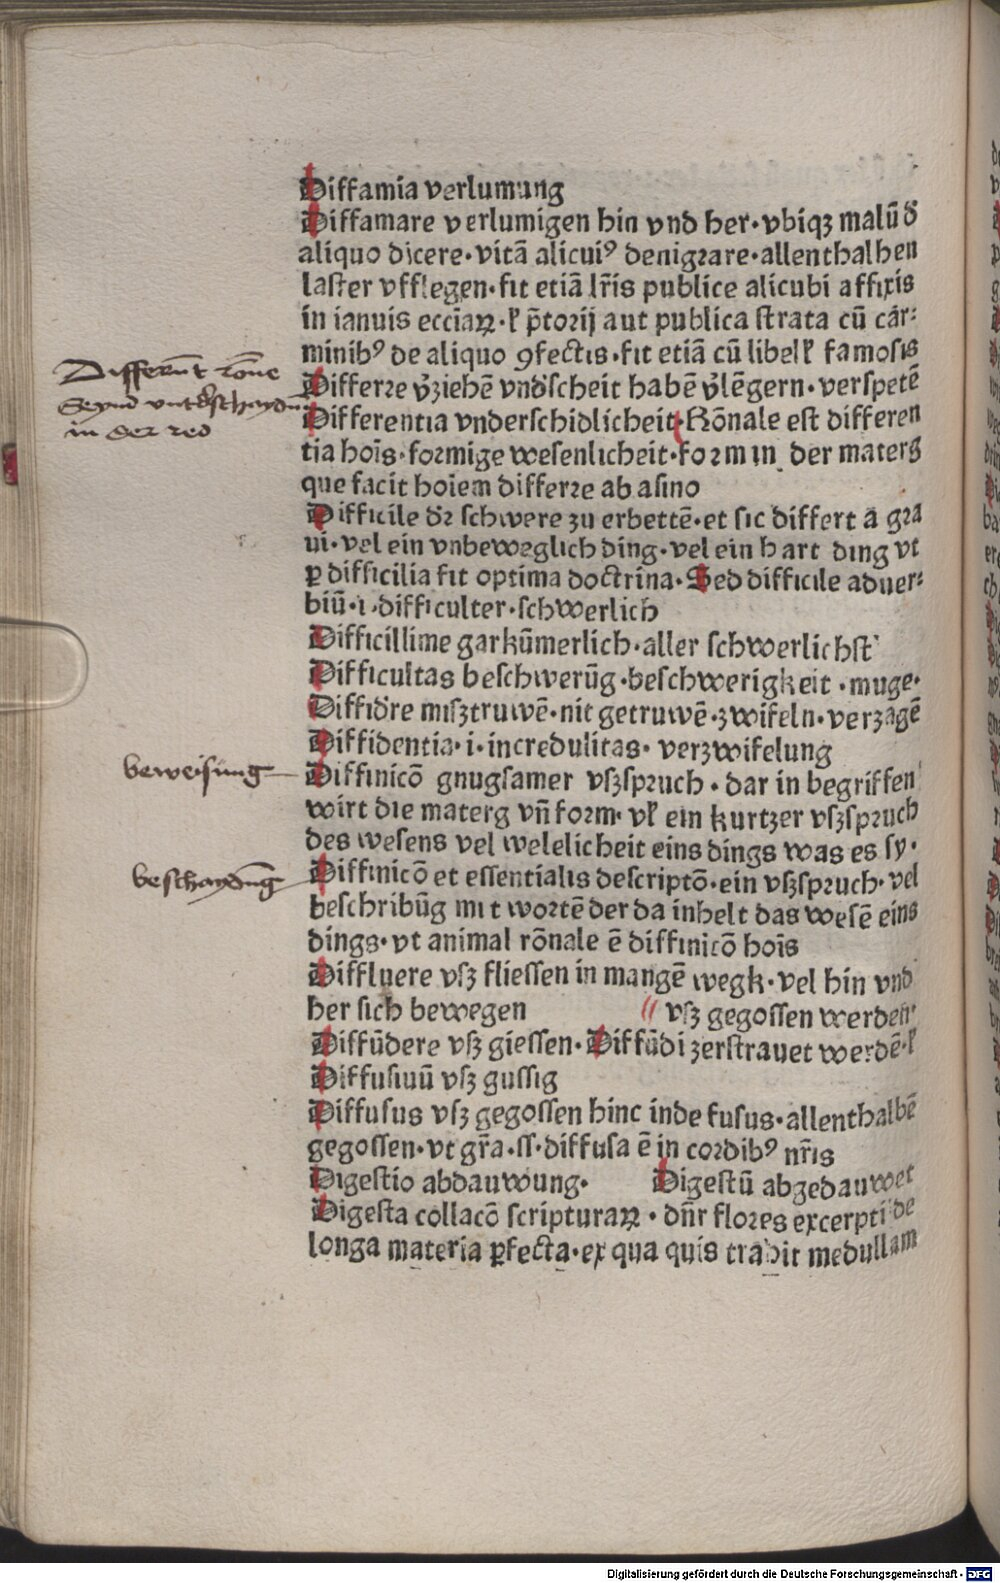 Diffamia verlumung
Diffamare verlumigen hin vnd her·vbiqꝫ malū đ
aliquo dicere·vitā alicuiꝰ denigꝛare·allenthalben
laſter vfflegen·fit etiā lr̄is publice alicubi affixis
in ianuis eccīaꝝ·ł p̄toꝛij aut publica ſtrata cū car⸗
minibꝰ de aliquo ꝯfectis·fit etiā cū libelł famoſis
Differre v̄ziehē vnd̄ſcheit habē v̄lēgern·verſpetē
Differentia vnderſchidlicheit·Rōnale eſt differen
tia hoīs·foꝛmige weſenlicheit·foꝛm in der materg
que facit hoīem differre ab aſino
Difficile d̄ꝛ ſchwere zu erbettē·et ſic differt ā gꝛa
ui·vel ein vnbeweglich ding·vel ein hart ding vt
ꝑ difficilia fit optima doctrina·Sed difficile aduer⸗
biū·i·difficulter·ſchwerlich
Difficillime garkūmerlich·aller ſchwerlichſt
Difficultas beſchwerūg·beſchwerigkeit·muge·
Diffid̄re miſztruwē·nit getruwē·zwifeln·verzagē
Diffidentia·i·incredulitas·verzwifelung
Diffinicō gnugſamer vſzſpꝛuch·dar in begriffen
wirt die materg vn̄ foꝛm·vł ein kurtzer vſzſpꝛuch
des weſens vel welelicheit eins dings was es ſy·
Diffinicō et eſſentialis deſcriptō·ein vſzſpꝛuch·vel
beſchribūg mit woꝛtē der da inhelt das weſē eins
dings·vt animal rōnale ē diffinicō hoīs
Diffluere vſz flieſſen in mangē wegk·vel hin vnd
her ſich bewegen // vſz gegoſſen werden·
Diffūdere vſz gieſſen·Diffūdi zerſtrauet werdē·ł
Diffuſiuū vſz guſſig
Diffuſus vſz gegoſſen hinc inde fuſus·allenthalbē
gegoſſen·vt gr̄a·ſſ·diffuſa ē in coꝛdibꝰ nr̄is
Digeſtio abdauwung· Digeſtū abgedauwet
Digeſta collacō ſcripturaꝝ·dn̄r floꝛes excerpti de
longa materia ꝑfecta·ex qua quis trahit medullam
Differūt rōne
Seynd vnterſchaydn
in der red
beweiſung
beſchaydūg
Digitalisierung gefördert durch die Deutsche Forschungsgemeinschaft - DFG